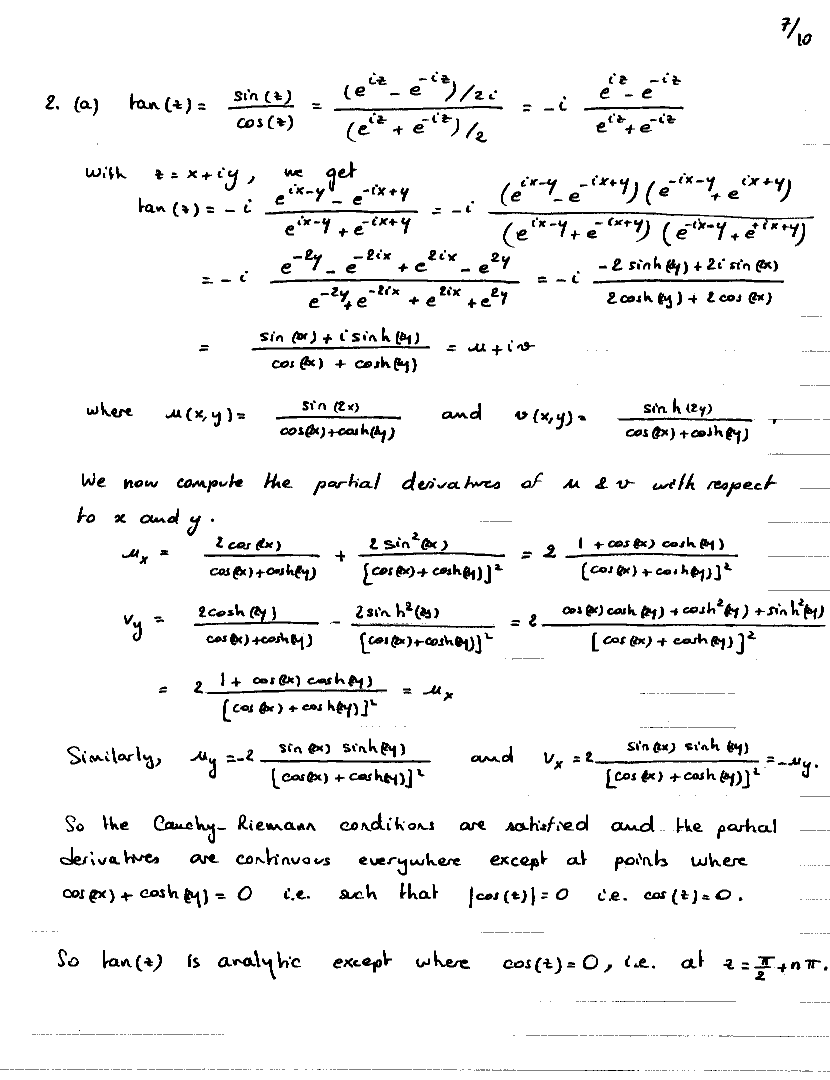 7/10
2. (a) tan(z) = sin(z)/cos(z) = (e^{iz} - e^{-iz})/2i / (e^{iz} + e^{-iz})/2 = -i (e^{iz} - e^{-iz})/(e^{iz} + e^{-iz})
With z = x+iy, we get
tan(z) = -i (e^{ix-y} - e^{-ix+y})/(e^{ix-y} + e^{-ix+y}) = -i (e^{ix-y} - e^{-ix+y})(e^{-ix-y} + e^{ix+y})/(e^{ix-y} + e^{-ix+y})(e^{-ix-y} + e^{+ix+y})
= -i (e^{-2y} - e^{-2ix} + e^{2ix} - e^{2y})/(e^{-2y} + e^{-2ix} + e^{2ix} + e^{2y}) = -i (-2 sinh(2y) + 2i sin(2x))/(2cosh(2y) + 2 cos(2x))
= (sin(2x) + i sinh(2y))/(cos(2x) + cosh(2y)) = u + iv
where u(x,y) = sin(2x)/(cos(2x)+cosh(2y)) and v(x,y) = sinh(2y)/(cos(2x)+cosh(2y)),
We now compute the partial derivatives of u & v with respect
to x and y.
u_x = 2cos(2x)/(cos(2x)+cosh(2y)) + 2 sin²(2x)/[cos(2x)+cosh(2y)]² = 2 (1 + cos(2x) cosh(2y))/[cos(2x)+cosh(2y)]²
v_y = 2cosh(2y)/(cos(2x)+cosh(2y)) - 2sinh²(2y)/[cos(2x)+cosh(2y)]² = 2 (cos(2x) cosh(2y) + cosh²(2y) + sinh²(2y))/[cos(2x) + cosh(2y)]²
= 2 (1 + cos(2x) cosh(2y))/[cos(2x) + cosh(2y)]² = u_x
Similarly, u_y = -2 sin(2x) sinh(2y)/[cos(2x) + cosh(2y)]² and v_x = 2 sin(2x) sinh(2y)/[cos(2x) + cosh(2y)]² = -u_y.
So the Cauchy-Riemann conditions are satisfied and the partial
derivatives are continuous everywhere except at points where
cos(2x) + cosh(2y) = 0 i.e. such that |cos(z)| = 0 i.e. cos(z) = 0.
So tan(z) is analytic except where cos(z) = 0, i.e. at z = π/2 + nπ.